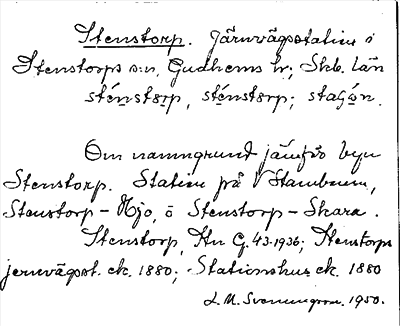 Stenstorp. Järnvägsstation i
Stenstorps sn, Gudhems hr; Skb. län
sténstɔrp, sténstɔrp; staʃón.
Om namngrund jämför byn
Stenstorp. Station på V Stambanan,
Stenstorp – Hjo, ö Stenstorp – Skara.
Stenstorp, Htn G. 43. 1936; Stenstorps
jernvägsst. ek. 1880; Stationshus ek. 1880
L. M. Svenungsson. 1950.